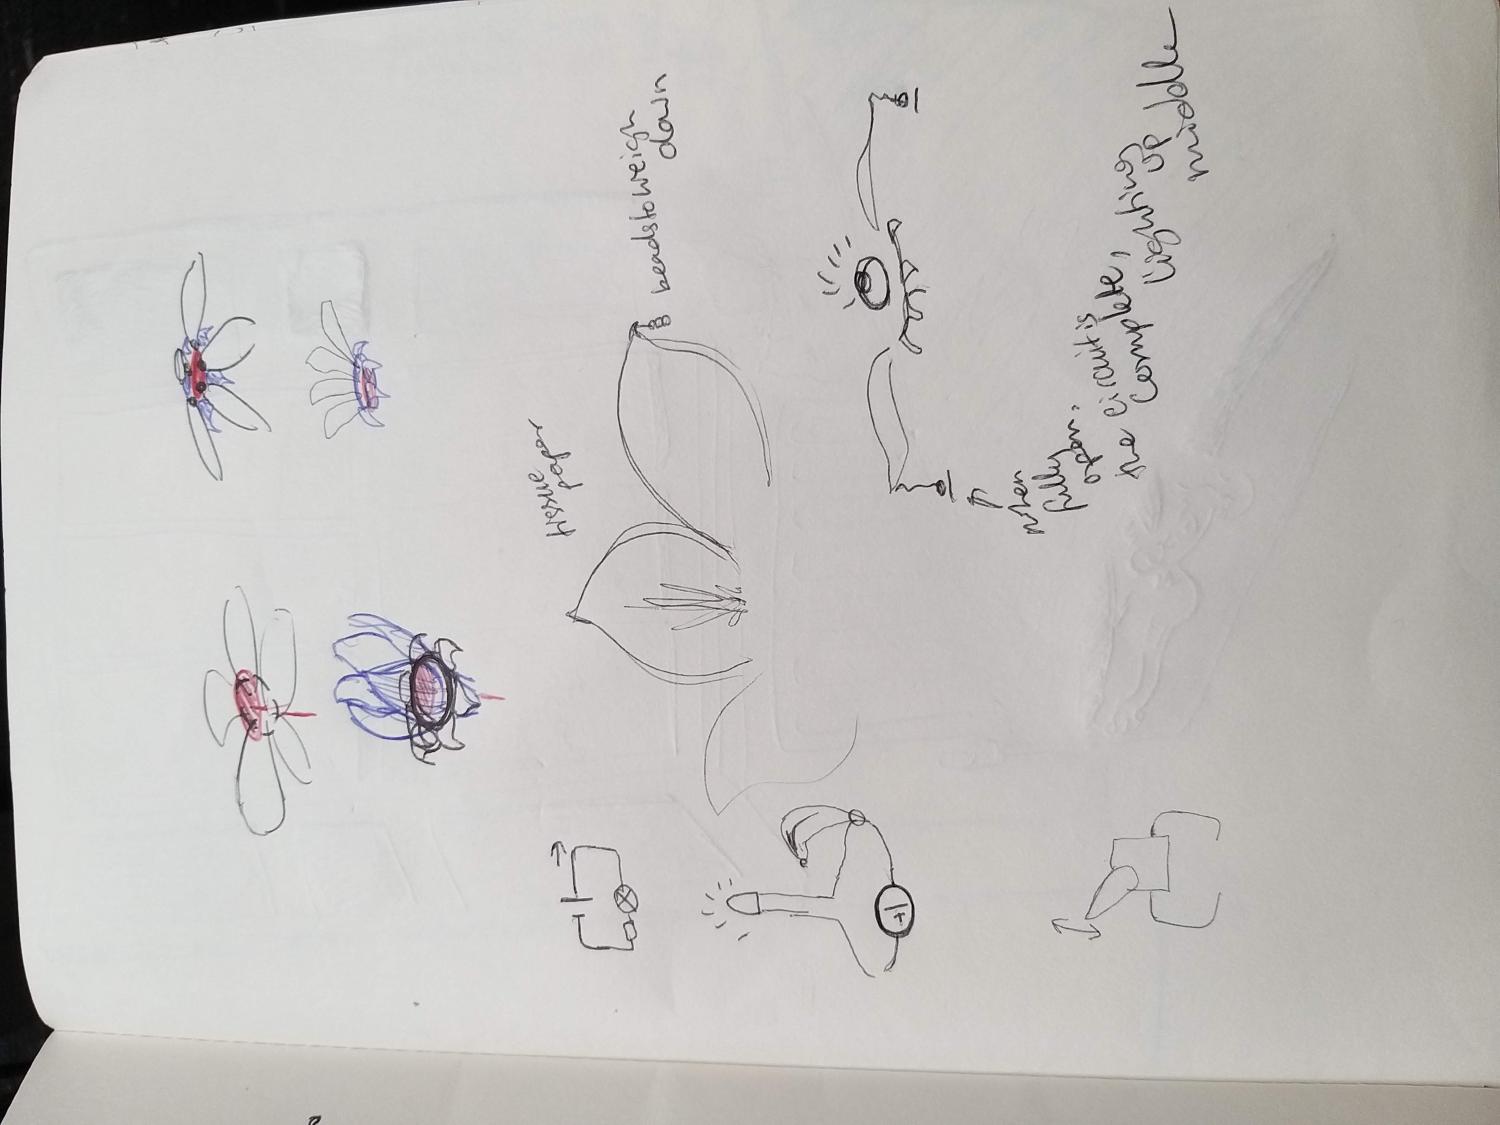 tissue
paper
beads to weigh
down
when
fully
open,
the circuit is
complete,
lighting
up
middle
+